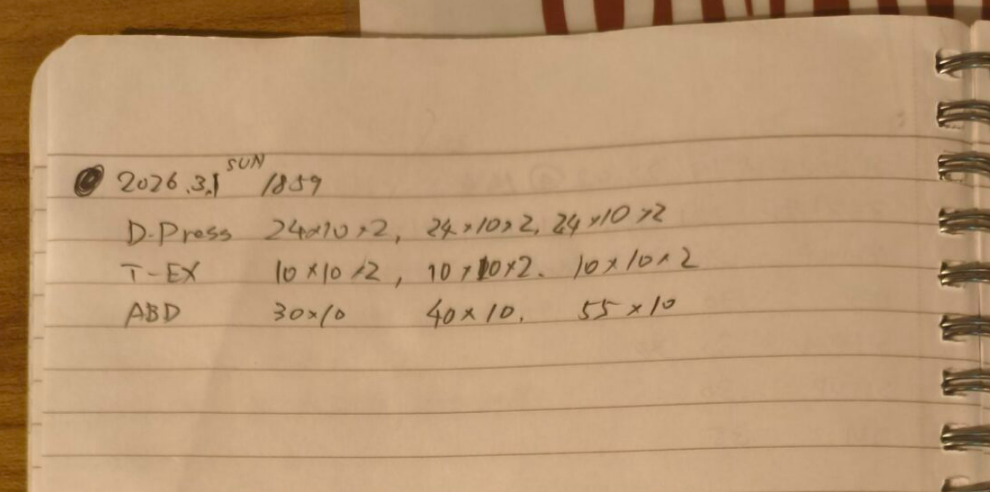 2026.3.1 SUN /1859
D-Press 24×10×2, 24×10×2, 24×10×2
T-EX 10×10×2, 10×10×2. 10×10×2
ABD 30×10 40×10. 55×10